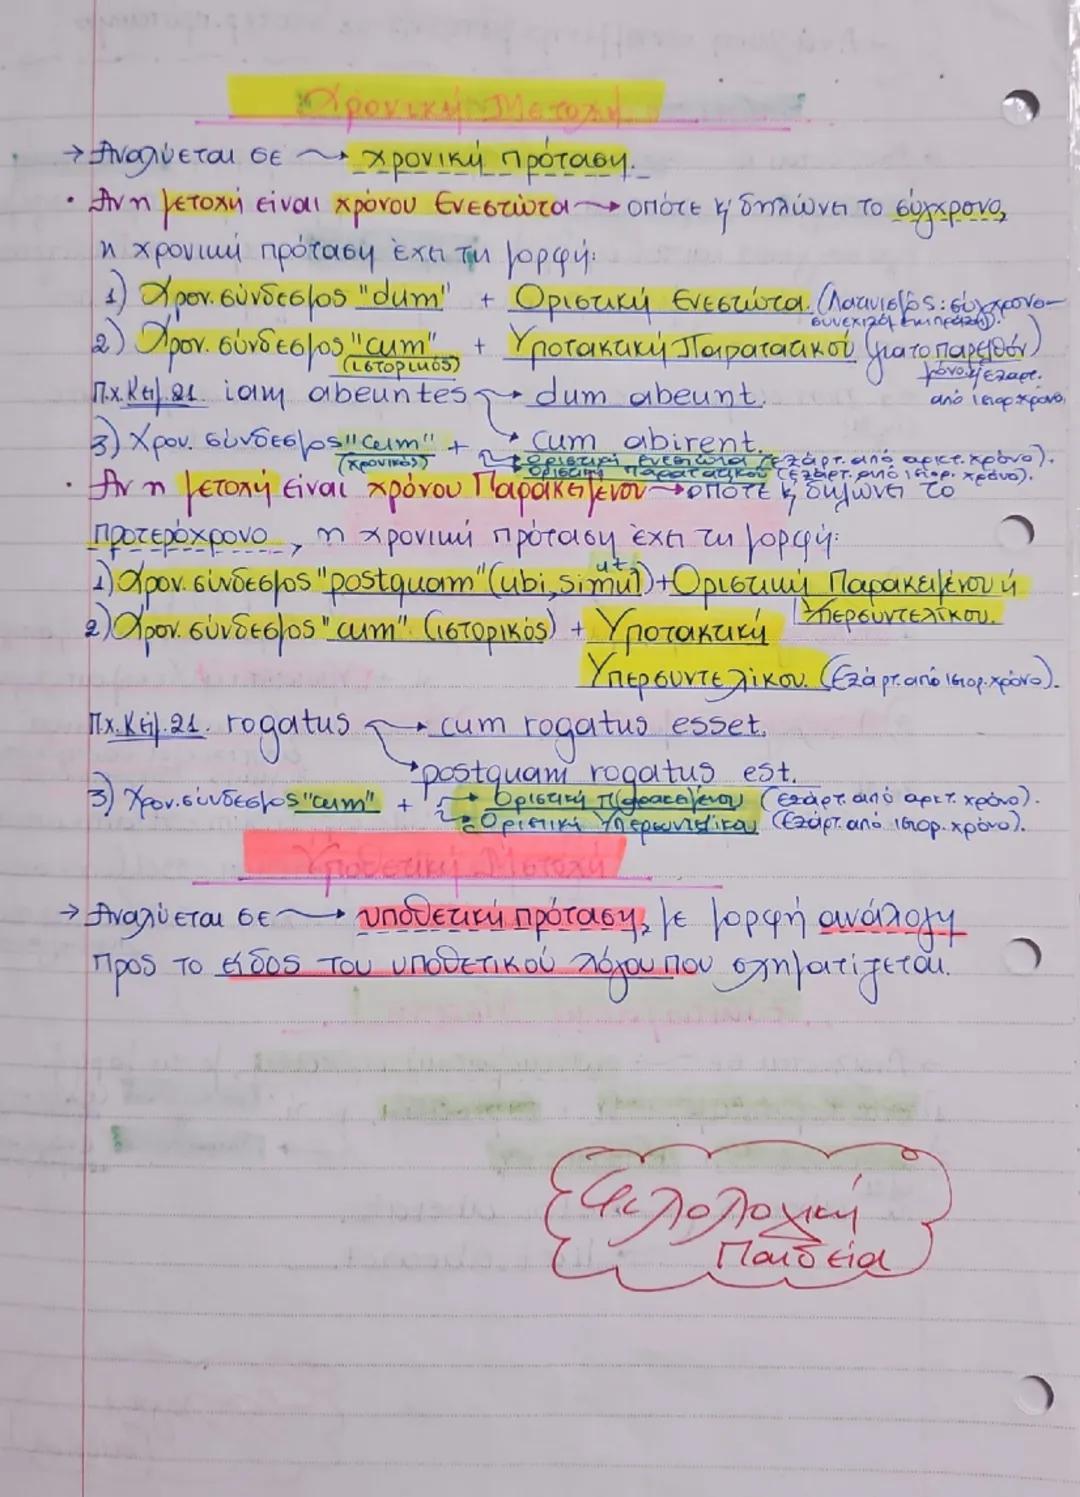 Χρονική Μετοχή
→ Αναλύεται σε → χρονική πρόταση.
• Αν η μετοχή είναι χρόνου Ενεστώτα → οπότε κ' δηλώνει το σύγχρονο,
η χρονική πρόταση έχει τη μορφή:
1) Χρον. σύνδεσμος "dum" + Οριστική Ενεστώτα. (Λατινισμός: σύγχρονο-
συνεχιζόμενη πράξη).
2) Χρον. σύνδεσμος "cum" + Υποτακτική Παρατατικού (για το παρελθόν)
(ιστορικός)
μόνο κ' εξαρτ.
από ιστορ χρόνο,
Π.χ. Κειμ. 21. iam abeuntes → dum abeunt.
→ cum abirent.
3) Χρον. σύνδεσμος "cum" + → Οριστική Ενεστώτα (εξάρτ. από αρκτ. χρόνο).
(χρονικός) → Οριστική Παρατατικού (εξάρτ. από ιστορ. χρόνο).
• Αν η μετοχή είναι χρόνου Παρακειμένου → οπότε κ' δηλώνει το
προτερόχρονο, η χρονική πρόταση έχει τη μορφή:
1) Χρον. σύνδεσμος "postquam" (ubi, simul) + Οριστική Παρακειμένου ή
ut,
Υπερσυντελίκου.
2) Χρον. σύνδεσμος "cum" (ιστορικός) + Υποτακτική
Υπερσυντελίκου. (Εξάρτ. από ιστορ. χρόνο).
Π.χ. Κειμ. 21. rogatus → cum rogatus esset.
→ postquam rogatus est.
3) Χρον. σύνδεσμος "cum" + → Οριστική Παρακειμένου (εξάρτ. από αρκτ. χρόνο).
→ Οριστική Υπερσυντελίκου (Εξάρτ. από ιστορ. χρόνο).
Υποθετική Μετοχή
→ Αναλύεται σε → υποθετική πρόταση, με μορφή ανάλογη
προς το είδος του υποθετικού λόγου που σχηματίζεται.
Φιλολογική
Παιδεία